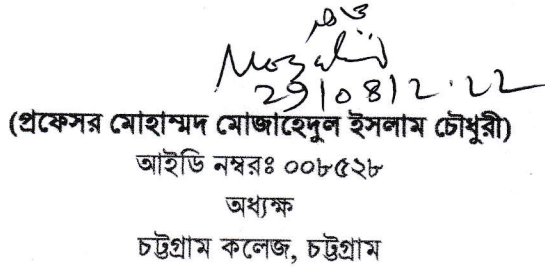 29/08/2022
(প্রফেসর মোহাম্মদ মোজাহেদুল ইসলাম চৌধুরী)
আইডি নম্বরঃ ০০৮৫২৮
অধ্যক্ষ
চট্টগ্রাম কলেজ, চট্টগ্রাম